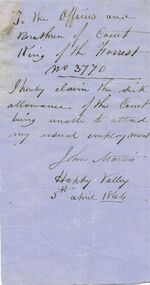 To the Officers and
Brethren of Court
King of the Forrest
No 3770
I hereby claim the sick
allowance of the Court
being unable to attend
my usual employment
John Martin
Happy Valley
5th April 1866